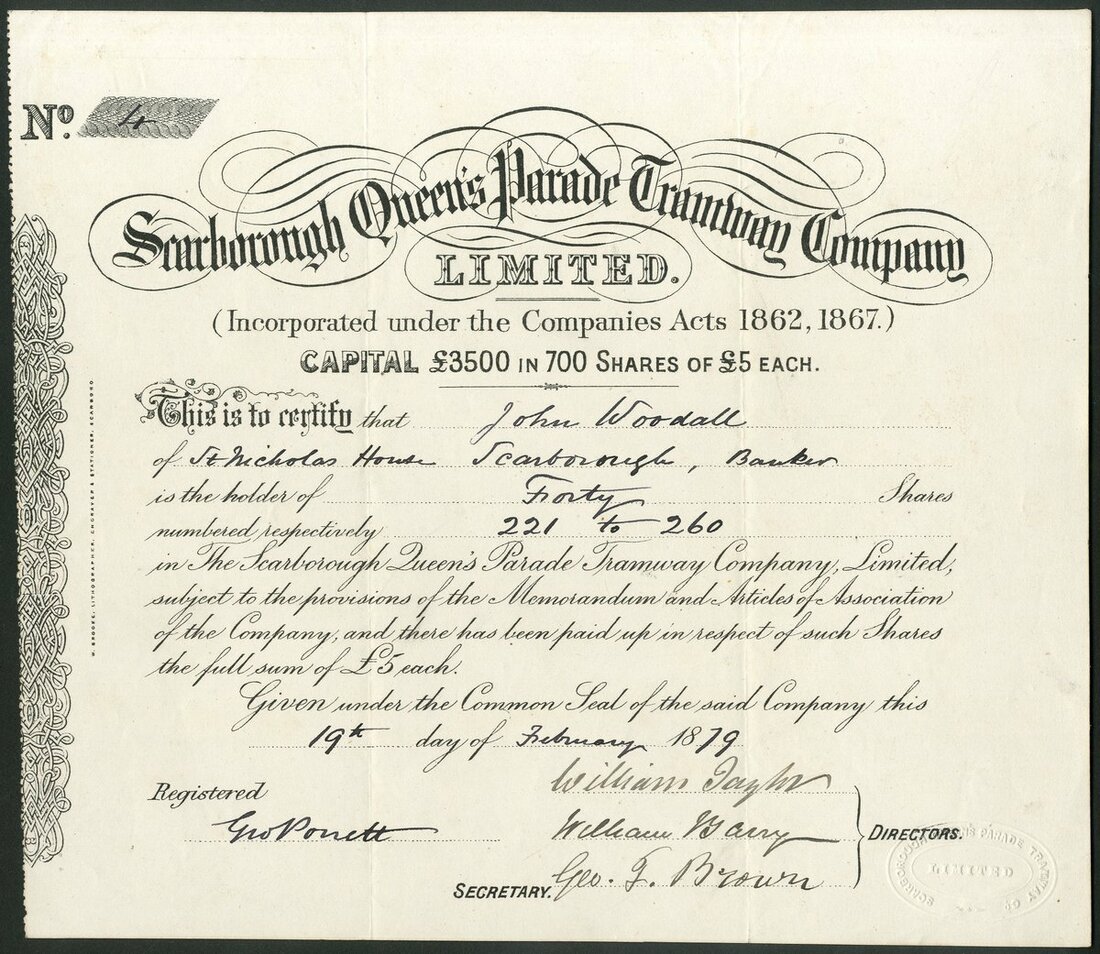 No. 4
Scarborough Queen's Parade Tramway Company
LIMITED.
(Incorporated under the Companies Acts 1862, 1867.)
CAPITAL £3500 IN 700 SHARES OF £5 EACH.
This is to certify that John Woodall
of St Nicholas House Scarborough, Banker
is the holder of Forty Shares
numbered respectively 221 to 260
in The Scarborough Queen's Parade Tramway Company, Limited,
subject to the provisions of the Memorandum and Articles of Association
of the Company, and there has been paid up in respect of such Shares
the full sum of £5 each.
Given under the Common Seal of the said Company this
19th day of February 1879
William Taylor
Registered
Geo Porrett
William Barry
DIRECTORS.
SECRETARY.
Geo. F. Brown
SCARBOROUGH QUEEN'S PARADE TRAMWAY CO.
LIMITED
LITHOGRAPHER, ENGRAVER & STATIONER, SCARBORO.